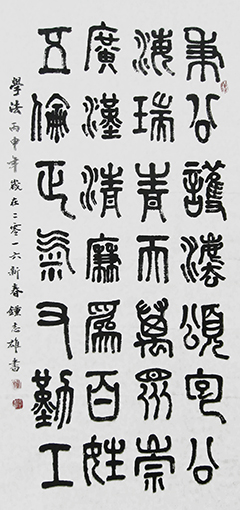 秉公護灋頌包公
海瑞青天萬眾崇
廣漢清廉爲百姓
五倫正氣又勤工
學法 丙申年 歲在二零一六新春 鍾志雄書